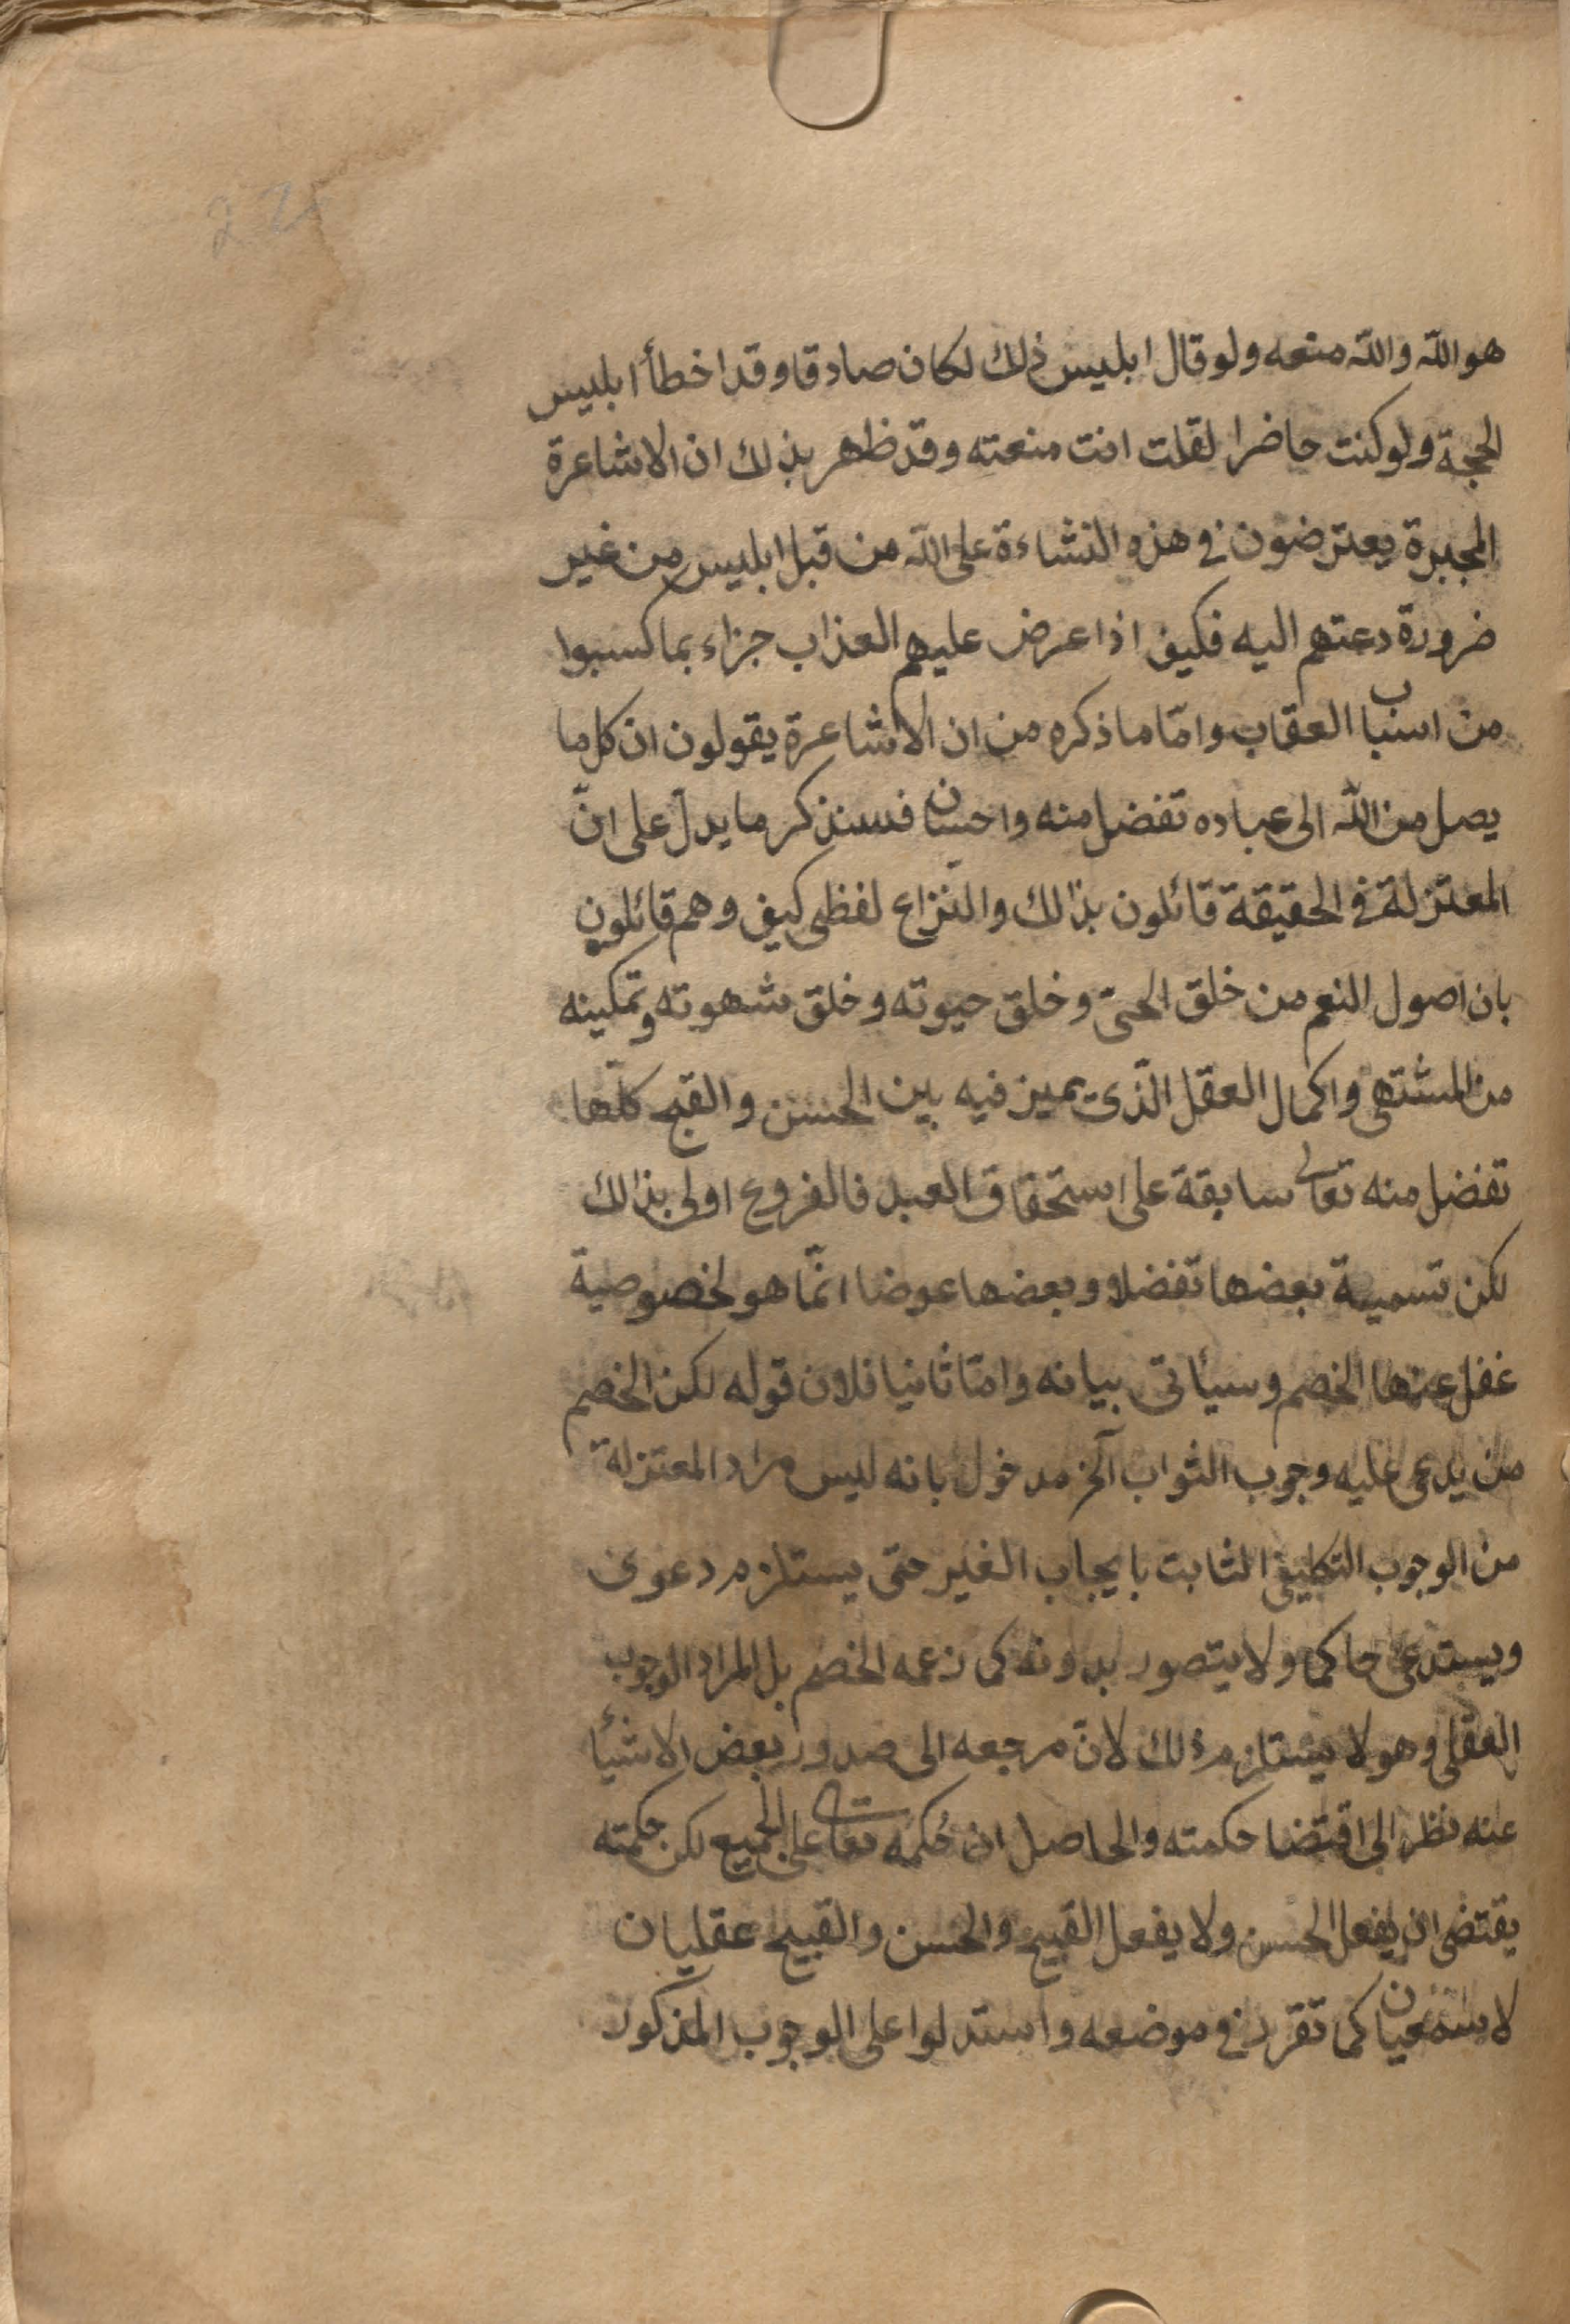 هو اللّه واللّه منعه ولو قال ابليس ذلك لكان صادقا وقد اخطأ ابليس
الحجة ولو كنت حاضرا لقلت انت منعته وقد ظهر بذلك ان الاشاعرة
المجبرة يعترضون في هذه النشاءة على اللّه من قبل ابليس من غير
ضرورة دعتهم اليه فكيف اذا عرض عليهم العذاب جزاء بما كسبوا
من اسباب العقاب وامّا ما ذكره من ان الاشاعرة يقولون ان كل ما
يصل من اللّه الى عباده تفضل منه واحسان فسنذكر ما يدلّ على انّ
المعتزلة في الحقيقة قائلون بذالك والنّزاع لفظي كيف وهم قائلون
بان اصول النعم من خلق الحىّ وخلق حيوته وخلق شهوته وتمكينه
من المشتهى واكمال العقل الّذى يميز فيه بين الحسن والقبح كلّها
تفضل منه تعالى سابقة على استحقاق العبد فالفروع اولى بذالك
لكن تسمية بعضها تفضلا وبعضها عوضا انّما هو لخصوصية
غفل عنها الخصم وسيأتى بيانه وامّا ثانيا فلان قوله لكن الخصم
من يدعى عليه وجوب الثواب آلخ مدخول بانه ليس مراد المعتزلة
من الوجوب التكليفي الثابت بايجاب الغير حتى يستلزم دعوى
ويستدعى حاكما ولا يتصور بدونه كما زعمه الخصم بل المراد الوجوب
العقلى وهو لا يستلزم ذلك لانّ مرجعه الى صدور بعض الاشيأ
عنه نظرا الى اقتضا حكمته والحاصل ان حُكمه تعالى على الجميع لكن حكمته
يقتضى ان يفعل الحسن ولا يفعل القبيح والحسن والقبيح عقليان
لا سمعيان كما تقرر في موضعه واستدلوا على الوجوب المذكور